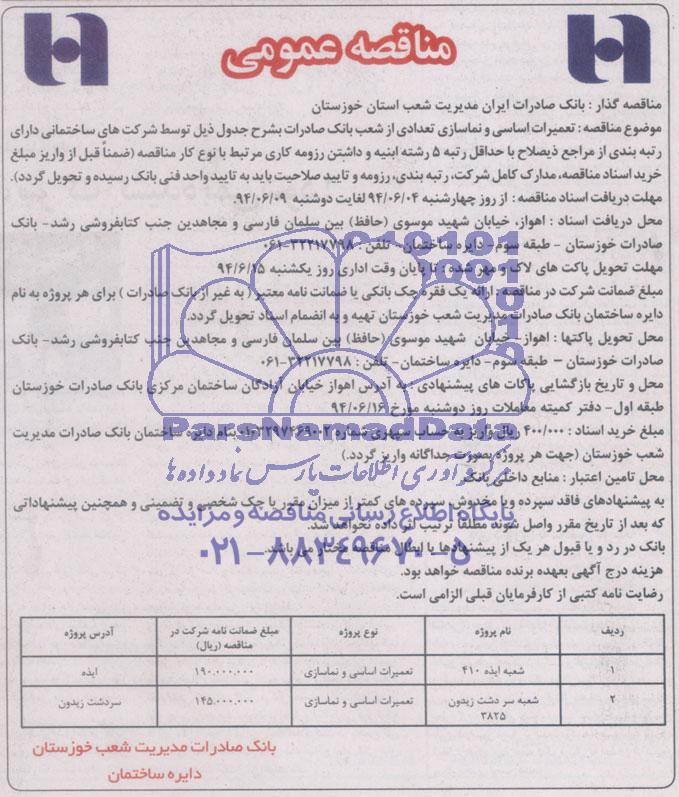 مناقصه عمومی
مناقصه گذار : بانک صادرات ایران مدیریت شعب استان خوزستان
موضوع مناقصه : تعمیرات اساسی و نماسازی تعدادی از شعب بانک صادرات بشرح جدول ذیل توسط شرکت های ساختمانی دارای
رتبه بندی از مراجع ذیصلاح با حداقل رتبه ۵ رشته ابنیه و داشتن رزومه کاری مرتبط با نوع کار مناقصه (ضمناً قبل از واریز مبلغ
خرید اسناد مناقصه، مدارک کامل شرکت، رتبه بندی، رزومه و تایید صلاحیت باید به تایید واحد فنی بانک رسیده و تحویل گردد).
مهلت دریافت اسناد مناقصه : از روز چهارشنبه ۹۴/۰۶/۰۴ لغایت دوشنبه ۹۴/۰۶/۰۹.
محل دریافت اسناد : اهواز، خیابان شهید موسوی (حافظ) بین سلمان فارسی و مجاهدین جنب کتابفروشی رشد- بانک
صادرات خوزستان - طبقه سوم- دایره ساختمان- تلفن : ۳۲۲۱۷۷۹۸-۰۶۱
مهلت تحویل پاکت های لاک و مهر شده : تا پایان وقت اداری روز یکشنبه ۹۴/۶/۱۵
مبلغ ضمانت شرکت در مناقصه : ارائه یک فقره چک بانکی یا ضمانت نامه معتبر ( به غیر از بانک صادرات ) برای هر پروژه به نام
دایره ساختمان بانک صادرات مدیریت شعب خوزستان تهیه و به انضمام اسناد تحویل گردد.
محل تحویل پاکتها : اهواز- خیابان شهید موسوی (حافظ) بین سلمان فارسی و مجاهدین جنب کتابفروشی رشد- بانک
صادرات خوزستان – طبقه سوم- دایره ساختمان- تلفن : ۳۲۲۱۷۷۹۸-۰۶۱
محل و تاریخ بازگشایی پاکات های پیشنهادی : به آدرس اهواز خیابان آزادگان ساختمان مرکزی بانک صادرات خوزستان
طبقه اول- دفتر کمیته معاملات روز دوشنبه مورخ ۹۴/۰۶/۱۶
مبلغ خرید اسناد : ۴۰۰/۰۰۰ ریال واریز به حساب سپهری شماره بنام دایره ساختمان بانک صادرات مدیریت
شعب خوزستان (جهت هر پروژه بصورت جداگانه واریز گردد.)
محل تامین اعتبار : منابع داخلی بانک
به پیشنهادهای فاقد سپرده ویا مخدوش، سپرده های کمتر از میزان مقرر یا چک شخصی و تضمینی و همچنین پیشنهاداتی
که بعد از تاریخ مقرر واصل شونه مطلقا ترتیب اثر داده نخواهد شد.
بانک در رد و یا قبول هر یک از پیشنهادها یا ابطال مناقصه مختار می باشد.
هزینه درج آگهی بعهده برنده مناقصه خواهد بود.
رضایت نامه کتبی از کارفرمایان قبلی الزامی است.
ردیف نام پروژه نوع پروژه مبلغ ضمانت نامه شرکت در مناقصه (ریال) آدرس پروژه
۱ شعبه ایذه ۴۱۰ تعمیرات اساسی و نماسازی ۱۹۰.۰۰۰.۰۰۰ ایذه
۲ شعبه سر دشت زیدون ۳۸۲۵ تعمیرات اساسی و نماسازی ۱۴۵.۰۰۰.۰۰۰ سردشت زیدون
بانک صادرات مدیریت شعب خوزستان
دایره ساختمان
ParsNamadData
مرکز فرآوری اطلاعات پارس نماد داده ها
پایگاه اطلاع رسانی مناقصه و مزایده
۰۲۱-۸۸۳۴۹۶۷۰-۵